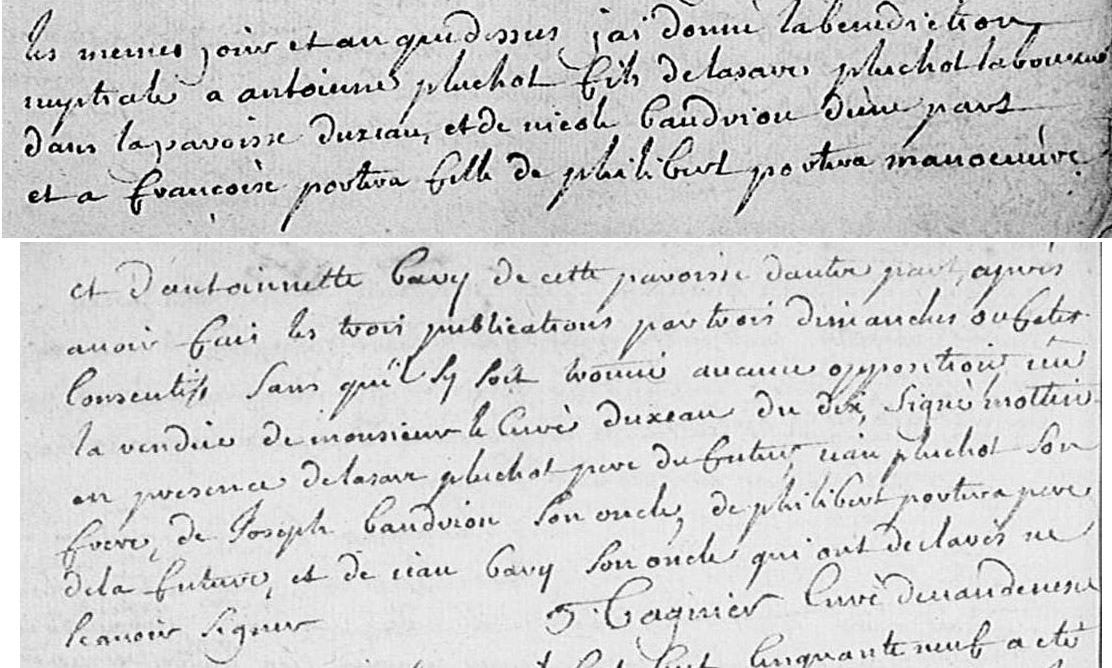 les memes jour et an que dessus j'ai donné la benediction
nuptiale a antoinne pluchot fils de lasare pluchot laboureur
dans la paroisse duxeau, et de nicole baudrion d'une part
et a francoise portera fille de philibert portera manoeuvre
et d'antoinette bavy de cette paroisse d'autre part, apres
avoir fait les trois publications par trois dimanches ou fetes
consecutifs sans qu'il sy soit trouvé aucune opposition vu
la rendüe de monsieur le Curé duxeau du dix, signé mottin
en presence de lasare pluchot pere du futur, jean pluchot son
frere, de Joseph baudrion son oncle, de philibert portera pere
de la future, et de jean bavy son oncle qui ont declarés ne
scavoir signer Tagnier Curé devandenesse
cinquante neuf a eté